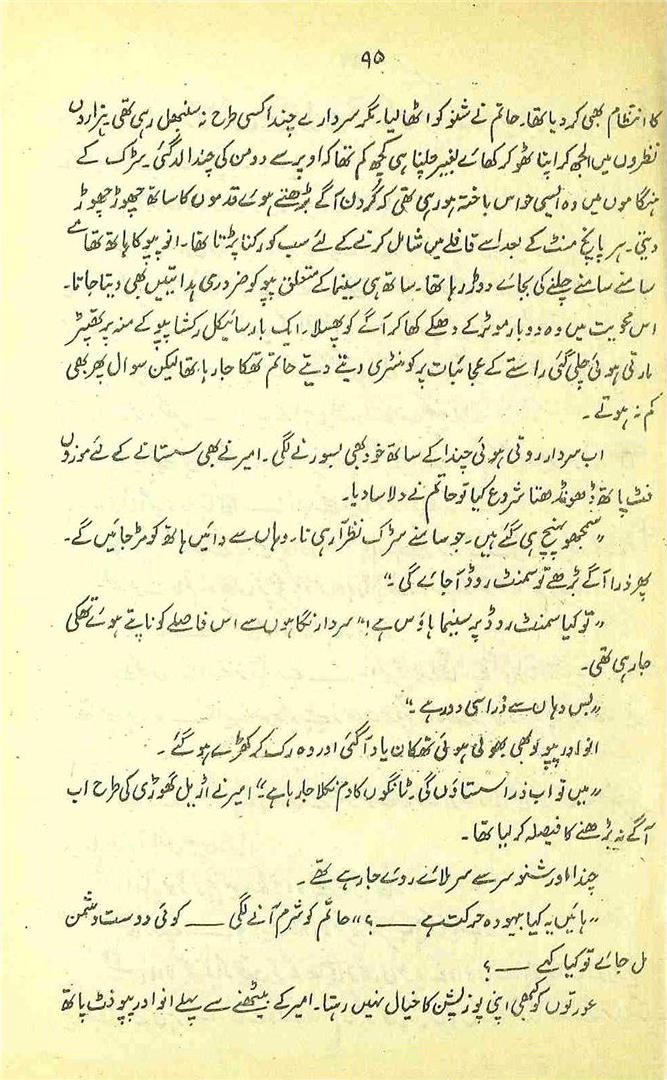 ۹۵
کا انتظام بھی کر دیا تھا۔ حاتم نے شنو کو اٹھا لیا۔ مگر سردار سے چندا کسی طرح نہ سنبھل رہی تھی ہزاروں
نظروں میں الجھ کر اپنا ٹھوکر کھائے بغیر چلنا ہی کچھ کم تھا کہ اوپر سے دو من کی چندا لد گئی۔ سڑک کے
ہنگاموں میں وہ ایسی حواس باختہ ہو رہی تھی کہ گردن آگے بڑھتے ہوئے قدموں کا ساتھ چھوڑ چھوڑ
دیتی۔ ہر پانچ منٹ کے بعد اسے قافلے میں شامل کرنے کے لئے سب کو رکنا پڑتا تھا۔ انو پپو کا ہاتھ تھامے
سامنے سامنے چلنے کی بجائے دوڑ رہا تھا۔ ساتھ ہی سینما کے متعلق پپو کو ضروری ہدایتیں بھی دیتا جاتا۔
اس محویت میں وہ دو بار موٹر کے دھکے کھا کر آگے کو پھسلا۔ ایک بار سائیکل رکشا پپو کے منہ پر تھپڑ
مارتی ہوئی چلی گئی راستے کے عجائبات پر کومنٹری دیتے دیتے حاتم تھکا جا رہا تھا لیکن سوال پھر بھی
کم نہ ہوتے۔
اب سردار روتی ہوئی چندا کے ساتھ خود بھی بسورنے لگی۔ امیر نے بھی سستانے کے لئے موزوں
فٹ پاتھ ڈھونڈھنا شروع کیا تو حاتم نے دلاسا دیا۔
”سمجھو پہنچ ہی گئے ہیں۔ جو سامنے سڑک نظر آ رہی نا۔ وہاں سے دائیں ہاتھ کو مڑ جائیں گے۔
پھر ذرا آگے بڑھے تو سمنٹ روڈ آ جائے گی۔“
”تو کیا سمنٹ روڈ پر سینما ہاؤس ہے!“ سردار نگاہوں سے اس فاصلے کو ناپتے ہوئے تھکی
جا رہی تھی۔
”بس وہاں سے ذرا سی دور ہے۔“
انو اور پپو کو بھی بھولی ہوئی تھکان یاد آ گئی اور وہ رک کر کھڑے ہو گئے۔
”میں تو اب ذرا سستاؤں گی۔ ٹانگوں کا دم نکلا جا رہا ہے۔“ امیر نے اڑیل گھوڑی کی طرح اب
آگے نہ بڑھنے کا فیصلہ کر لیا تھا۔
چندا اور شنو سر سے سر ملائے روئے جا رہے تھے۔
”ہائیں یہ کیا بیہودہ حرکت ہے ـــ؟“ حاتم کو شرم آنے لگی ـــ کوئی دوست دشمن
مل جائے تو کیا کہے ـــ؟
عورتوں کو کبھی اپنی پوزیشن کا خیال نہیں رہتا۔ امیر کے بیٹھنے سے پہلے انو اور پپو فٹ پاتھ